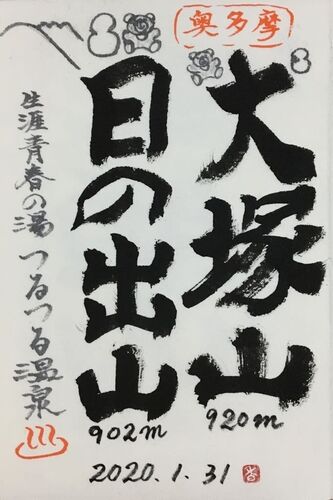 奥多摩
大塚山
920m
日の出山
902m
生涯青春の湯 つるつる温泉
2020.1.31